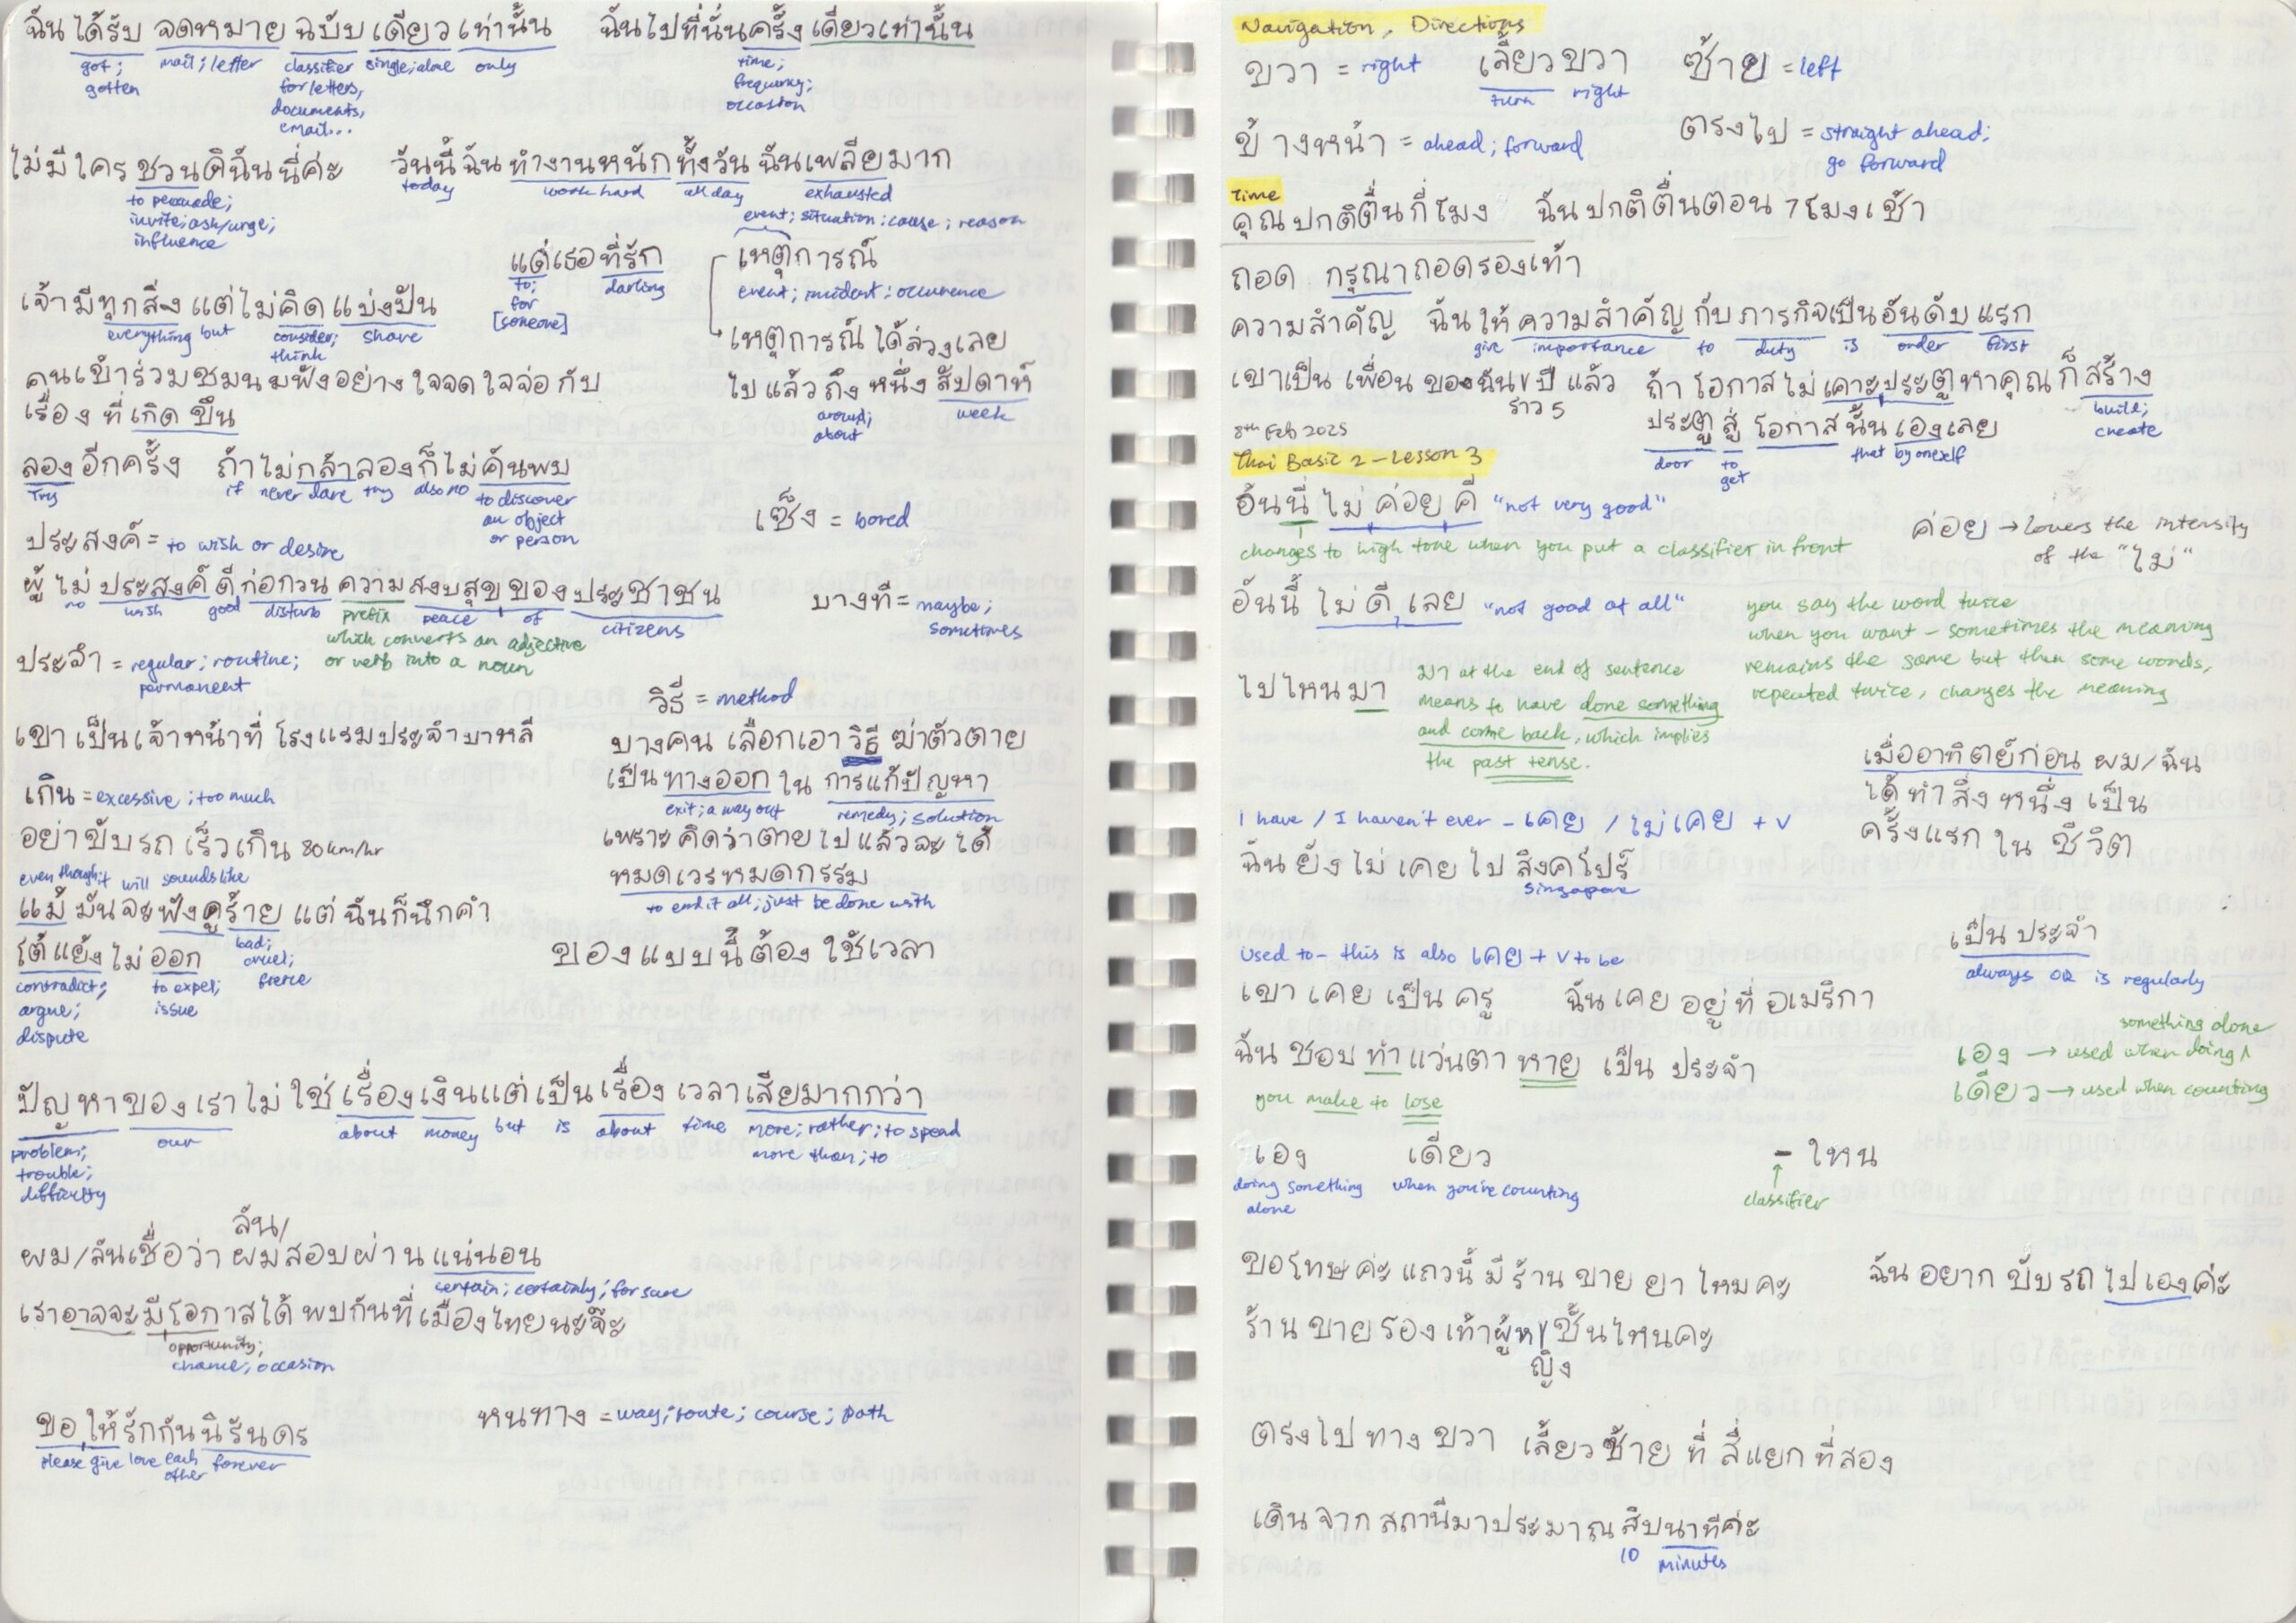 ฉันได้รับ จดหมาย ฉบับ เดียว เท่านั้น
got; gotten
mail; letter
classifier for letters, documents, email...
single; alone
only
ฉันไปที่นั่นครั้งเดียวเท่านั้น
time; frequency; occasion
ไม่มีใครชวนดิฉันนี่ค่ะ
to persuade; invite; ask/urge; influence
วันนี้ฉันทำงานหนักทั้งวัน ฉันเพลียมาก
today
work hard
all day
exhausted
event; situation; cause; reason
แด่เธอที่รัก
to; for [someone]
darling
เหตุการณ์
event; incident; occurence
เจ้ามีทุกสิ่ง แต่ไม่คิดแบ่งปัน
everything but
consider; think
share
เหตุการณ์ได้ล่วงเลย
ไปแล้วถึงหนึ่งสัปดาห์
around; about
week
คนเข้าร่วมชมนมฟังอย่างใจจดใจจ่อกับ
เรื่องที่เกิดขึ้น
ลองอีกครั้ง
Try
ถ้าไม่กล้าลองก็ไม่ค้นพบ
if never dare try also no
to discover an object or person
เซ็ง = bored
ประสงค์ = to wish or desire
ผู้ไม่ประสงค์ดีก่อกวนความสงบสุขของประชาชน
no wish good disturb
prefix
peace of citizens
which converts an adjective or verb into a noun
บางที = maybe; sometimes
ประจำ = regular; routine; permanent
วิธี = method
เขาเป็นเจ้าหน้าที่โรงแรมประจำบาหลี
บางคนเลือกเอาวิธีฆ่าตัวตาย
เป็นทางออกในการแก้ปัญหา
exit; a way out
remedy; solution
เพราะคิดว่าตายไปแล้วจะได้
หมดเวรหมดกรรม
to end it all; just be done with
เกิน = excessive; too much
อย่าขับรถเร็วเกิน 80 km/hr
even though; it will sounds like
แม้มันจะฟังดูร้าย แต่ฉันก็นึกคำ
bad; cruel; fierce
โต้แย้งไม่ออก
contradict; argue; dispute
to expel; issue
ของแบบนี้ต้องใช้เวลา
ปัญหาของเราไม่ใช่เรื่องเงินแต่เป็นเรื่องเวลาเสียมากกว่า
problem; trouble; difficulty
our
about money but is about time
more; rather; to spend more than; to
ฉัน/
ผม/ฉันเชื่อว่าผมสอบผ่านแน่นอน
certain; certainly; for sure
เราอาจจะมีโอกาสได้พบกันที่เมืองไทยนะจ๊ะ
opportunity; chance; occasion
ขอให้รักกันนิรันดร
please give love each other forever
หนทาง = way; route; course; path
Navigation, Directions
ขวา = right
เลี้ยวขวา
turn right
ซ้าย = left
ข้างหน้า = ahead; forward
ตรงไป = straight ahead; go forward
Time
คุณปกติตื่นกี่โมง ฉันปกติตื่นตอน 7 โมงเช้า
ถอด กรุณาถอดรองเท้า
ความสำคัญ ฉันให้ความสำคัญกับภารกิจเป็นอันดับแรก
give importance to duty is order first
เขาเป็นเพื่อนของฉัน ปีแล้ว
ราว 5
ถ้าโอกาสไม่เคาะประตูหาคุณก็สร้าง
build; create
ประตูสู่โอกาสนั้นเองเลย
door
to get
that by oneself
8th Feb 2025
Thai Basic 2 - Lesson 3
อันนี่ไม่ค่อยดี "not very good"
changes to high tone when you put a classifier in front
ค่อย → lowers the intensity of the "ไม่"
อันนี้ไม่ดีเลย "not good at all"
you say the word twice
when you want - sometimes the meaning
remains the same but then some words,
repeated twice, changes the meaning
ไปไหนมา
มา at the end of sentence
means to have done something
and come back, which implies
the past tense.
เมื่ออาทิตย์ก่อน ผม/ฉัน
ได้ทำสิ่งหนึ่งเป็น
ครั้งแรกในชีวิต
I have / I haven't ever - เคย / ไม่เคย + V
ฉันยังไม่เคยไปสิงคโปร์
Singapore
เป็นประจำ
always OR is regularly
Used to - this is also เคย + V to be
เขาเคยเป็นครู ฉันเคยอยู่ที่อเมริกา
something done
เอง → used when doing ^
เดียว → used when counting
ฉันชอบทำแว่นตาหายเป็นประจำ
you make to lose
เอง
doing something alone
เดียว
when you're counting
- ไหน
↑
classifier
ขอโทษค่ะ แถวนี้มีร้านขายยาไหมคะ
ฉันอยากขับรถไปเองค่ะ
ร้านขายรองเท้าผู้ห ชั้นไหนคะ
ญิง
ตรงไปทางขวา เลี้ยวซ้ายที่สี่แยกที่สอง
เดินจากสถานีมาประมาณสิบนาทีค่ะ
10 minutes